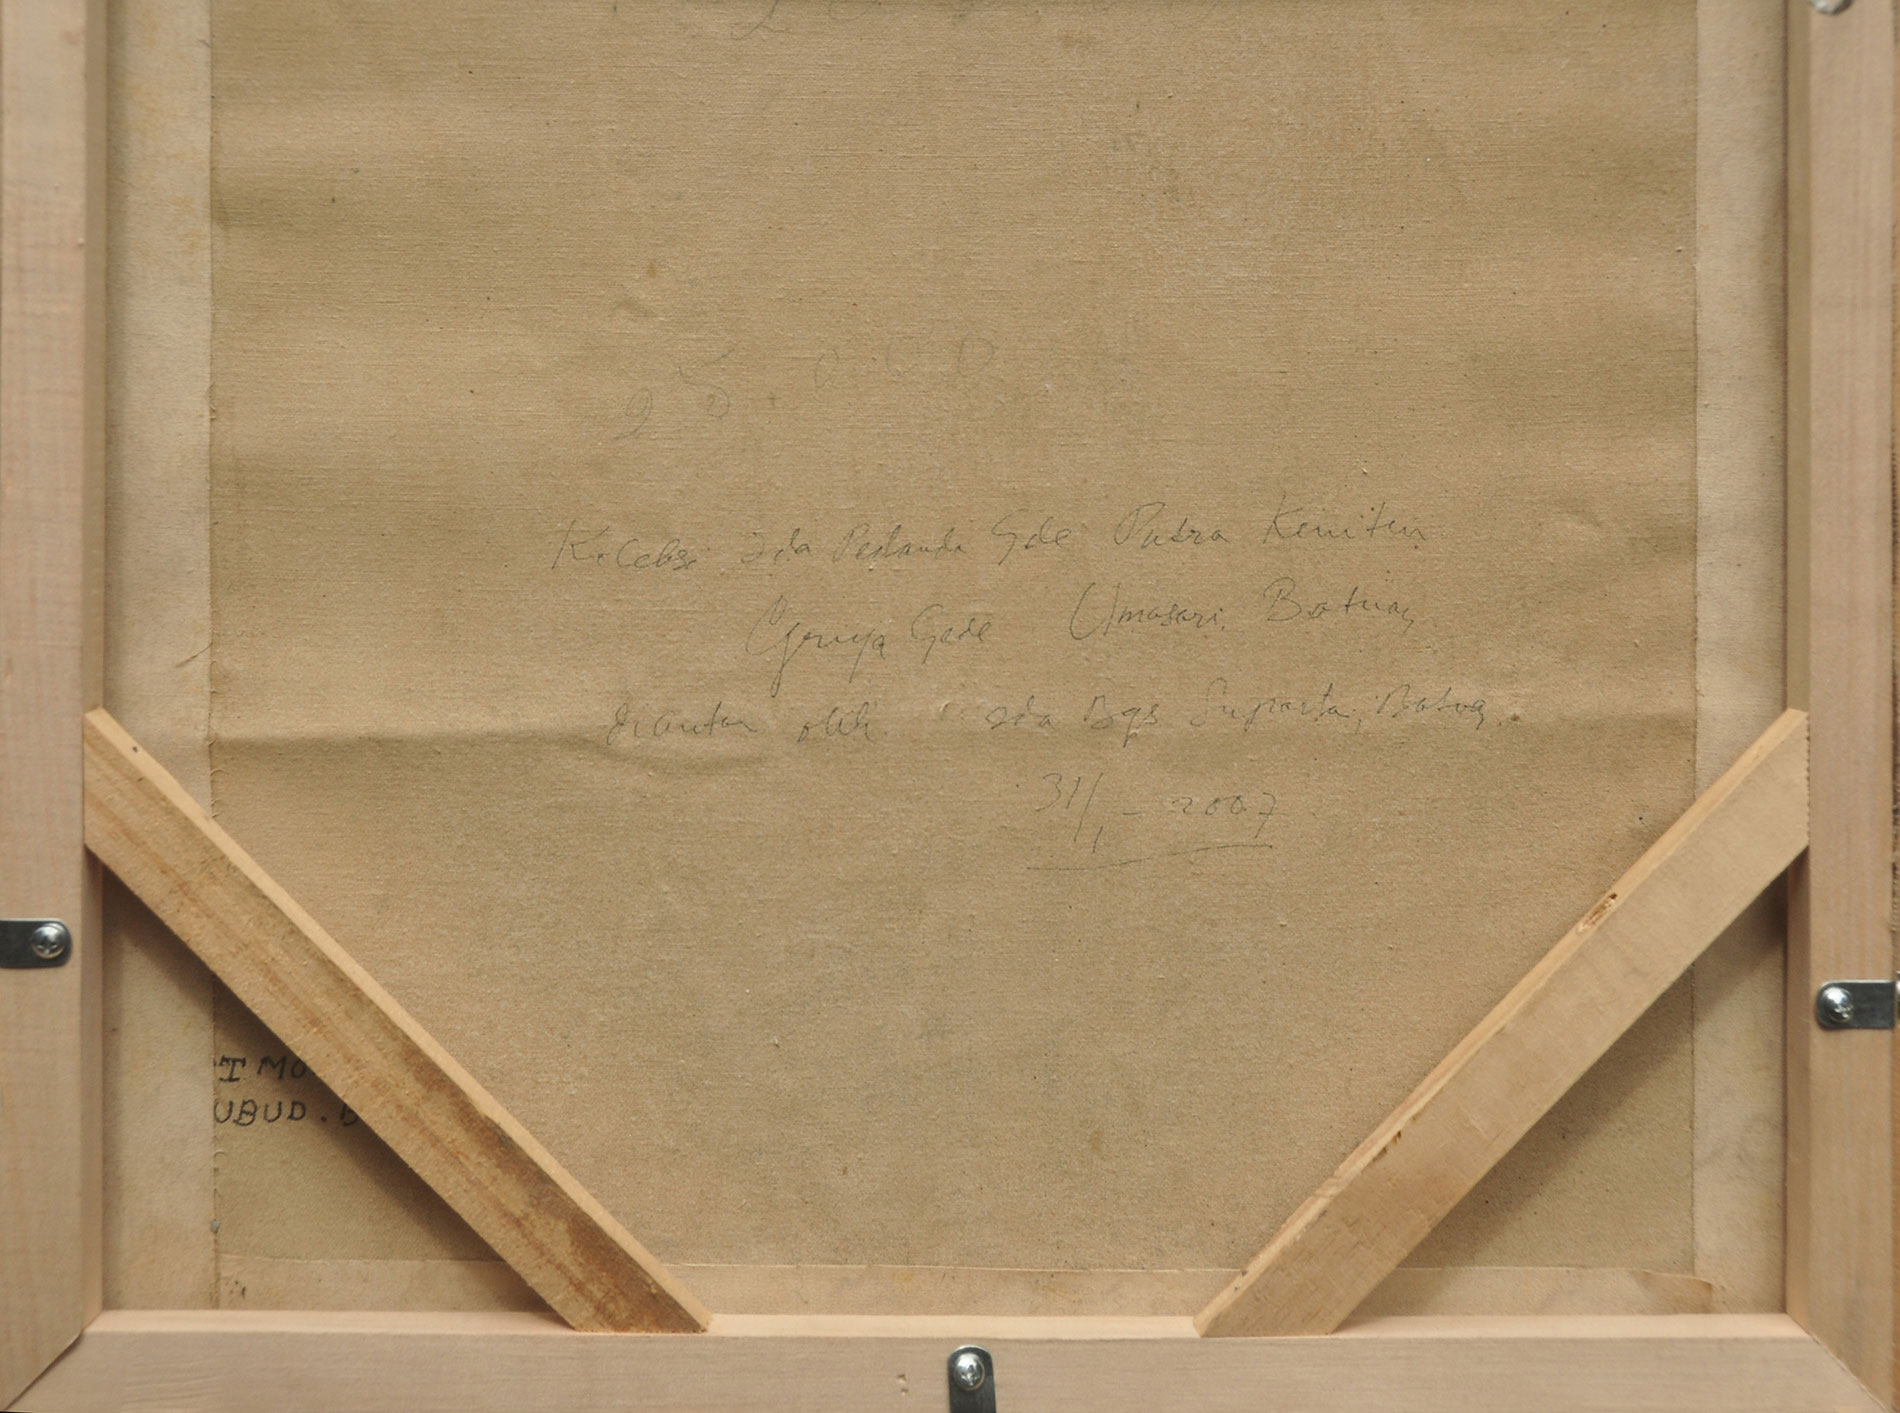 25.000
Kelebsi Ida Pedanda Gde Putra Keniten
Gerya Gede Umasari, Batuan,
diantar oleh Ida Bgs Suparta, Batuan.
31/1 - 2007
T MO
UBUD. B